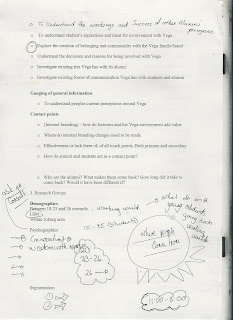 o To Understand the workings and Success of other Alumni programs
o To understand student's aspirations and ideas for involvement with Vega
o Explore the emotion of belonging and commonality with the Vega family/brand
o Understand the decisions and reasons for being involved with Vega
o Investigate existing ties Vega has with its alumni
o Investigate existing forms of communication Vega has with students and alumni
Gauging of general information
o To understand peoples current perceptions around Vega
Contact points
o (Internal branding) – how do lecturers and the Vega environment add value
o Where do internal branding changes need to be made
o Effectiveness to look/form of, all touch points. Both primary and secondary
o How do alumni and students act as a contact point?
o Who are the alumni? What makes them come back? How long did it take to
come back? Would it have been different?
3. Research Groups
Demographics
Between 18-25 and 26 onwards
LSM
Within Joburg area
Psychographics
18-25 (students)
23-26
26 →
what do with
going student
going into
working world
where people
come from
Segmentation
11:00 - 8:00